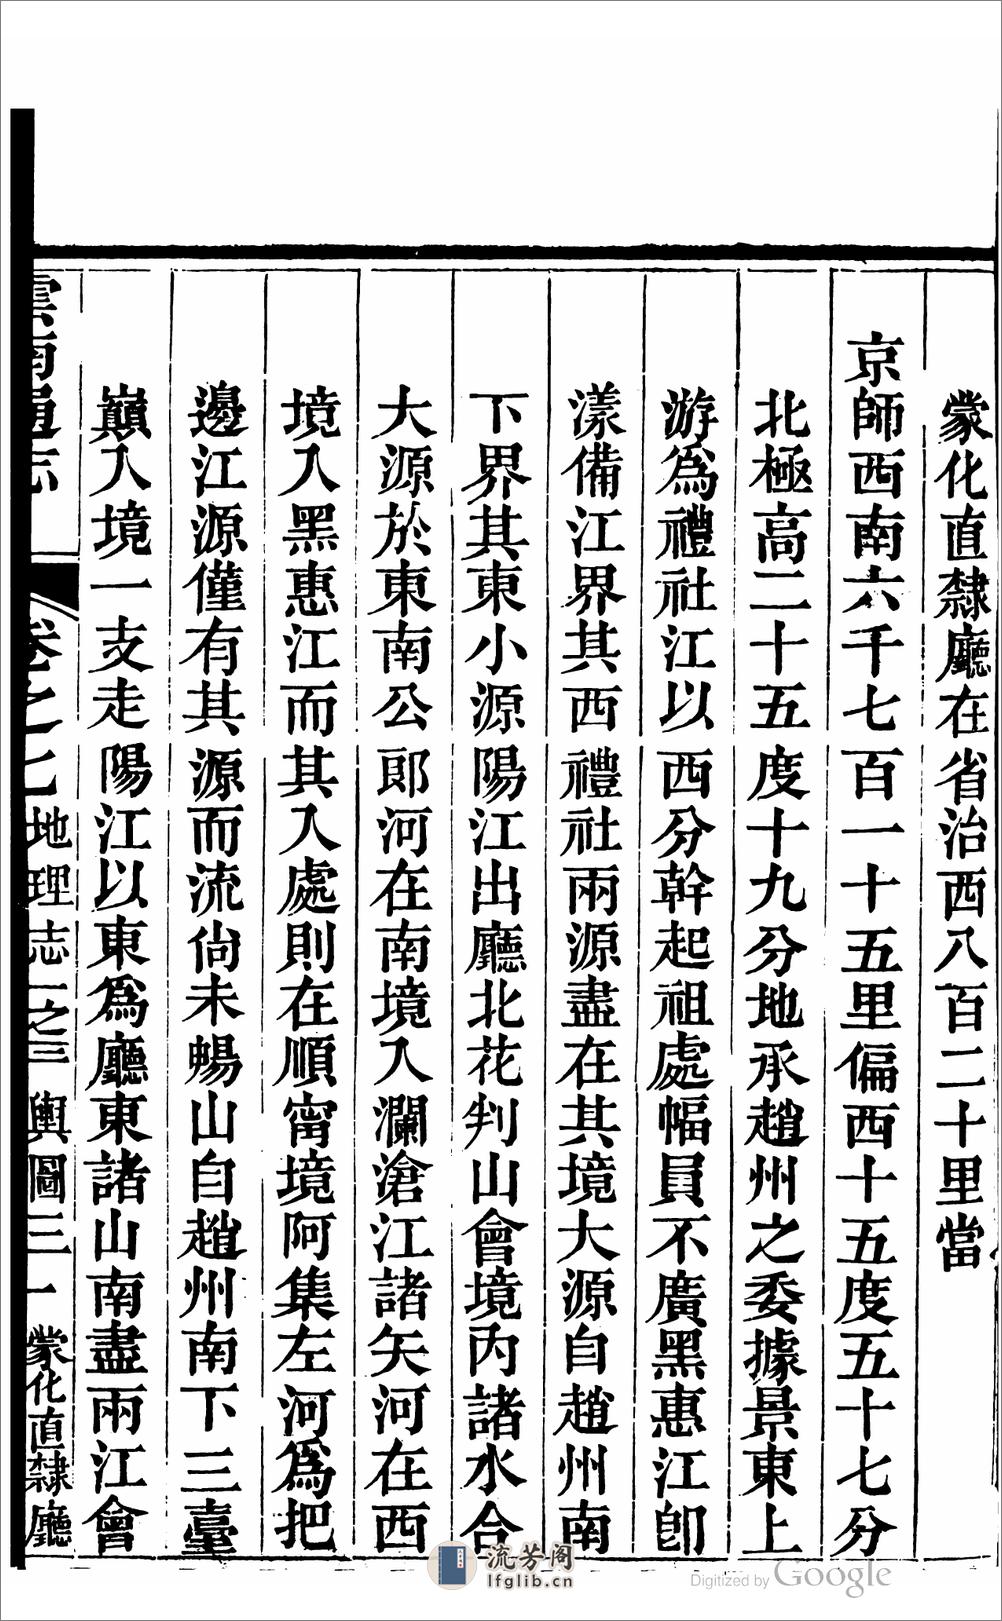 蒙化直隸廳在省治西八百二十里當
京師西南六千七百一十五里偏西十五度五十七分
北極高二十五度十九分地承趙州之委據景東上
游爲禮社江以西分幹起祖處幅員不廣黑惠江卽
漾備江界其西禮社兩源盡在其境大源自趙州南
下界其東小源陽江出廳北花判山會境内諸水合
大源於東南公郎河在南境入瀾滄江諸矢河在西
境入黑惠江而其入處則在順甯境阿集左河爲把
邊江源僅有其源而流尙未暢山自趙州南下三臺
巔入境一支走陽江以東爲廳東諸山南盡兩江會
雲南通志 卷之七 地理志一之三 輿圖三 一 蒙化直隸廳
流芳阁
lfglib.cn
Digitized by Google